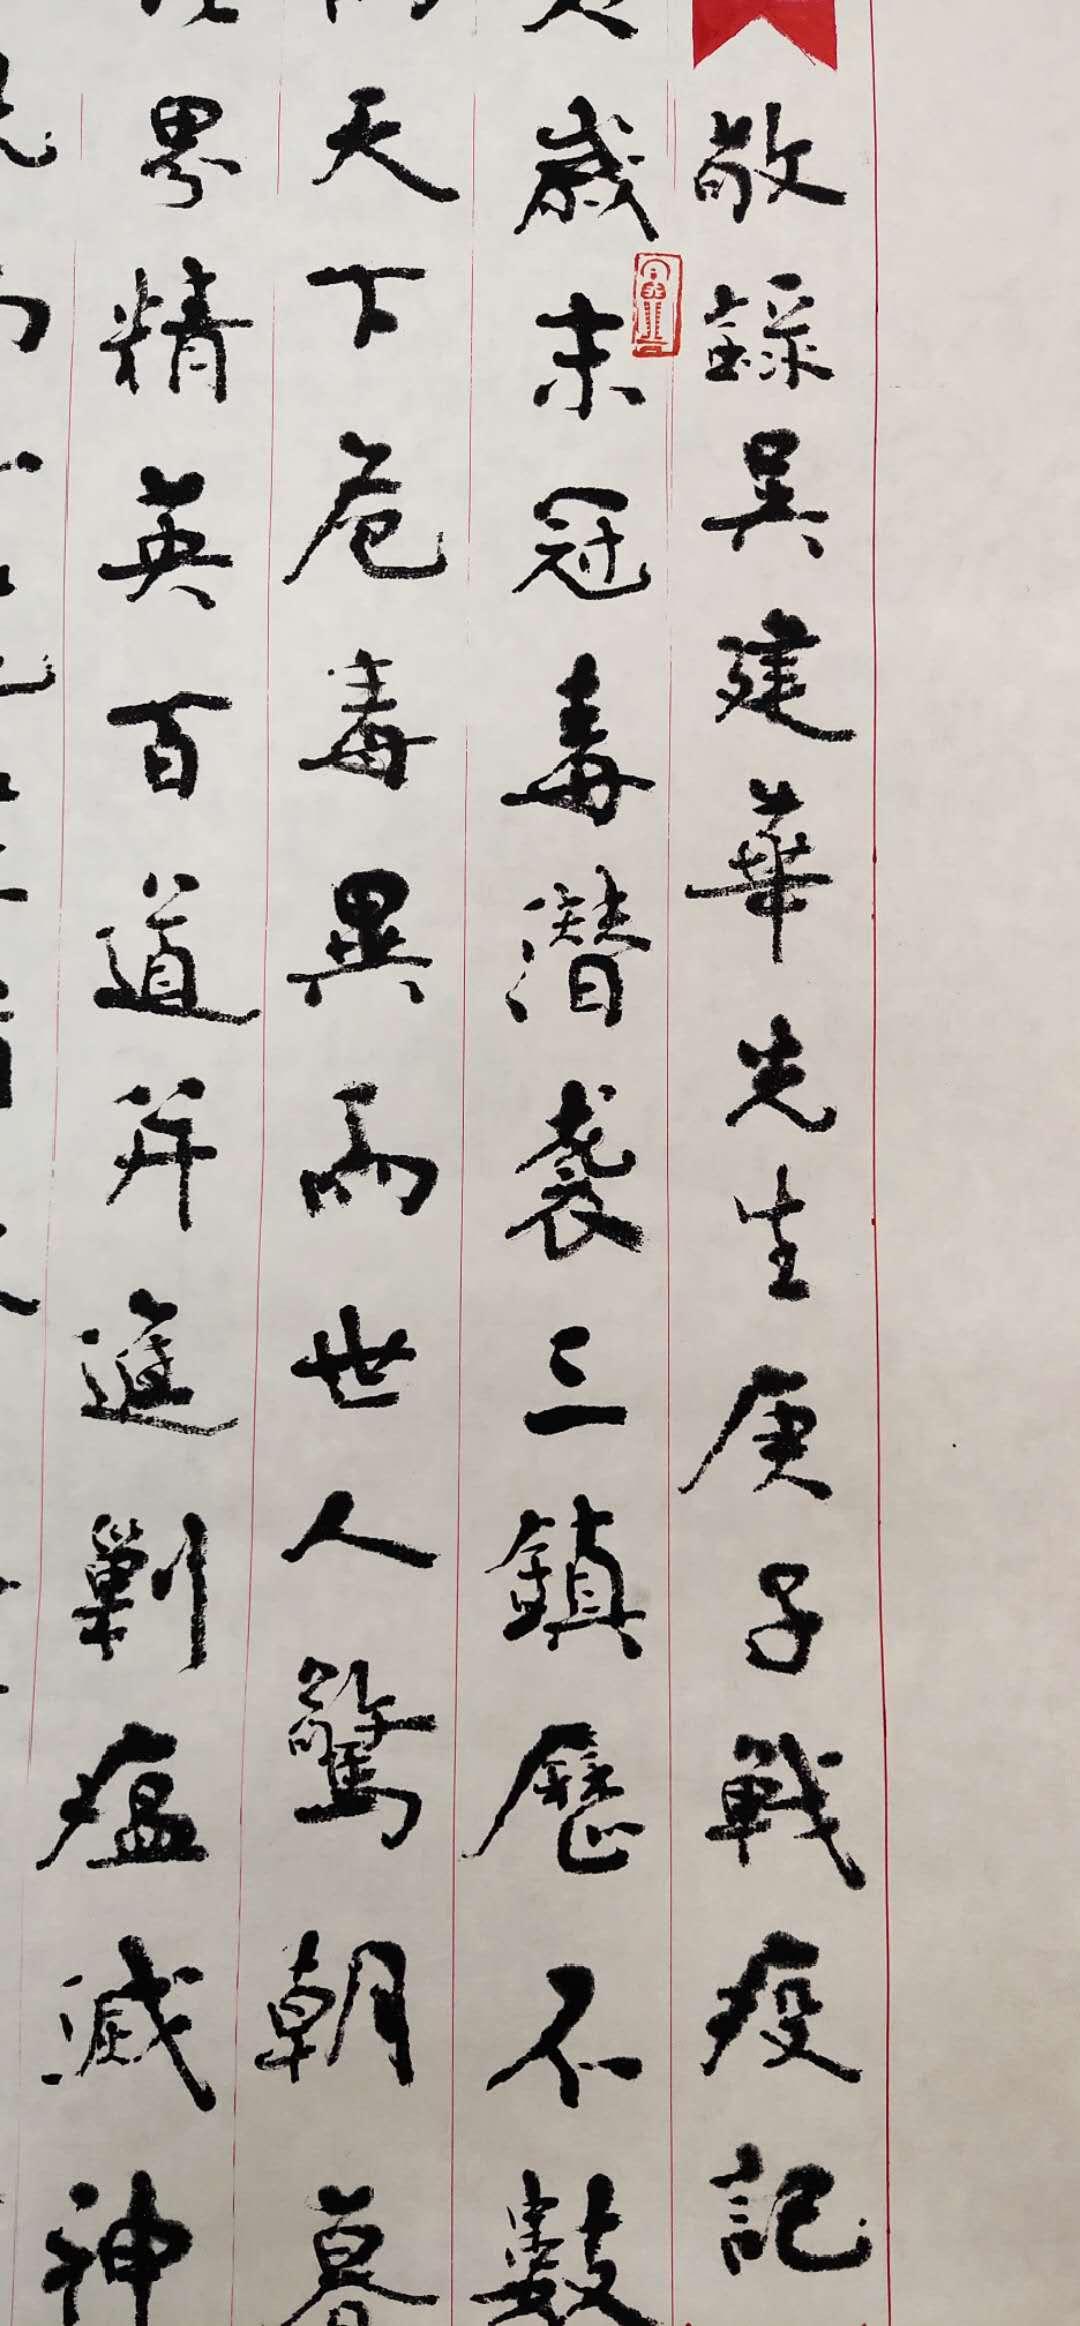 敬録吳建華先生庚子戰疫記
歲末冠毒潛襲三鎮歷不數
天下危毒異而世人驚朝暮
界精英百道并進剿瘟滅神